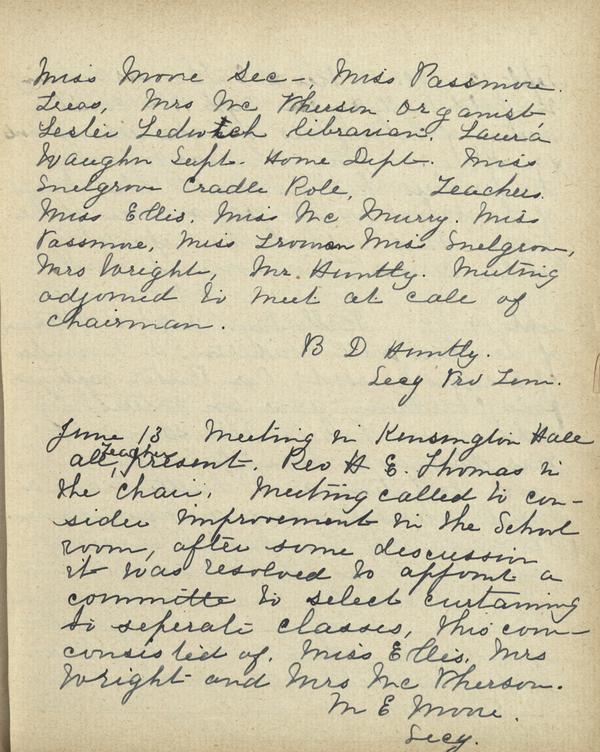 Miss Moore Sec-, Miss Passmore.
Treas, Mrs Mc Pherson Organist,
Leslie Ledwitch librarian. Laura
Vaughn Supt. Home Dept. Miss
Snelgrove Cradle Role, Teachers.
Miss Ellis. Miss Mc Murry. Miss
Passmore, Miss Troman Miss Snelgrove,
Mrs Wright, Mr. Huntly. Meeting
adjorned to meet at cale of
chairman.
B D Huntly.
Secy Pro Tem.
June 13 Meeting in Kensington Hale
all, Teachers present. Rev H E. Thomas in
the chair. Meeting called to con-
sider improvement in the School
room, after some discussion
it was resolved to appoint a
committe to select curtaining
to seperate classes, this com-
consisted of. Miss Ellis, Mrs
Wright and Mrs Mc Pherson.
M E Moore.
Secy.